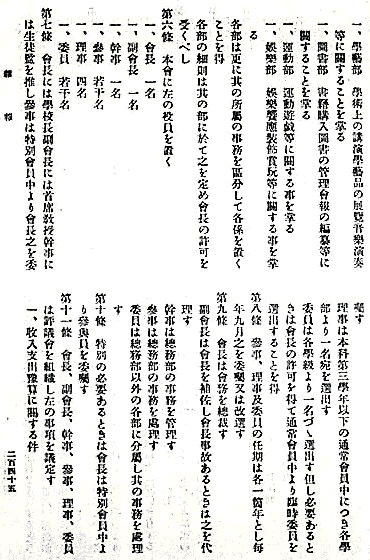 一、學藝部 學術上の講演學藝品の展覽音樂演奏
等に關することを掌る
一、圖書部 書籍購入圖書の管理會報の編纂等に
關することを掌る
一、運動部 運動遊戲等に關する事を掌る
一、娯樂部 娯樂饗應裝飾賞玩等に關する事を掌
る
各部は更に其の所屬の事務を區分して各係を置く
ことを得
各部の細則は其の部に於て之を定め會長の許可を
受くべし
第六條 本會に左の役員を置く
一、會長 一名
一、副會長 一名
一、幹事 一名
一、參事 若干名
一、理事 四名
一、委員 若干名
第七條 會長には學校長副會長には首席敎授幹事に
は生徒監を推し參事は特別會員中より會長之を委
雜報
囑す
理事は本科第三學年以下の通常會員中につき各學
部より一名宛を選出す
委員は各學級より一名づゝ選出す但し必要あると
きは會長の許可を得て通常會員中より臨時委員を
選出することを得
第八條 參事、理事及委員の任期は各一箇年とし每
年九月之を委囑又は改選す
第九條 會長は會務を總裁す
副會長は會長を補佐し會長事故あるときは之を代
理す
幹事は總務部の事務を管理す
參事は總務部の事務を處理す
委員は總務部以外の各部に分屬し其の事務を處理
す
第十條 特別の必要あるときは會長は特別會員中よ
り參與員を委囑す
第十一條 會長、副會長、幹事、參事、理事、委員
は評議會を組織し左の事項を議定す
一、收入支出豫算に關する件
二百四十五